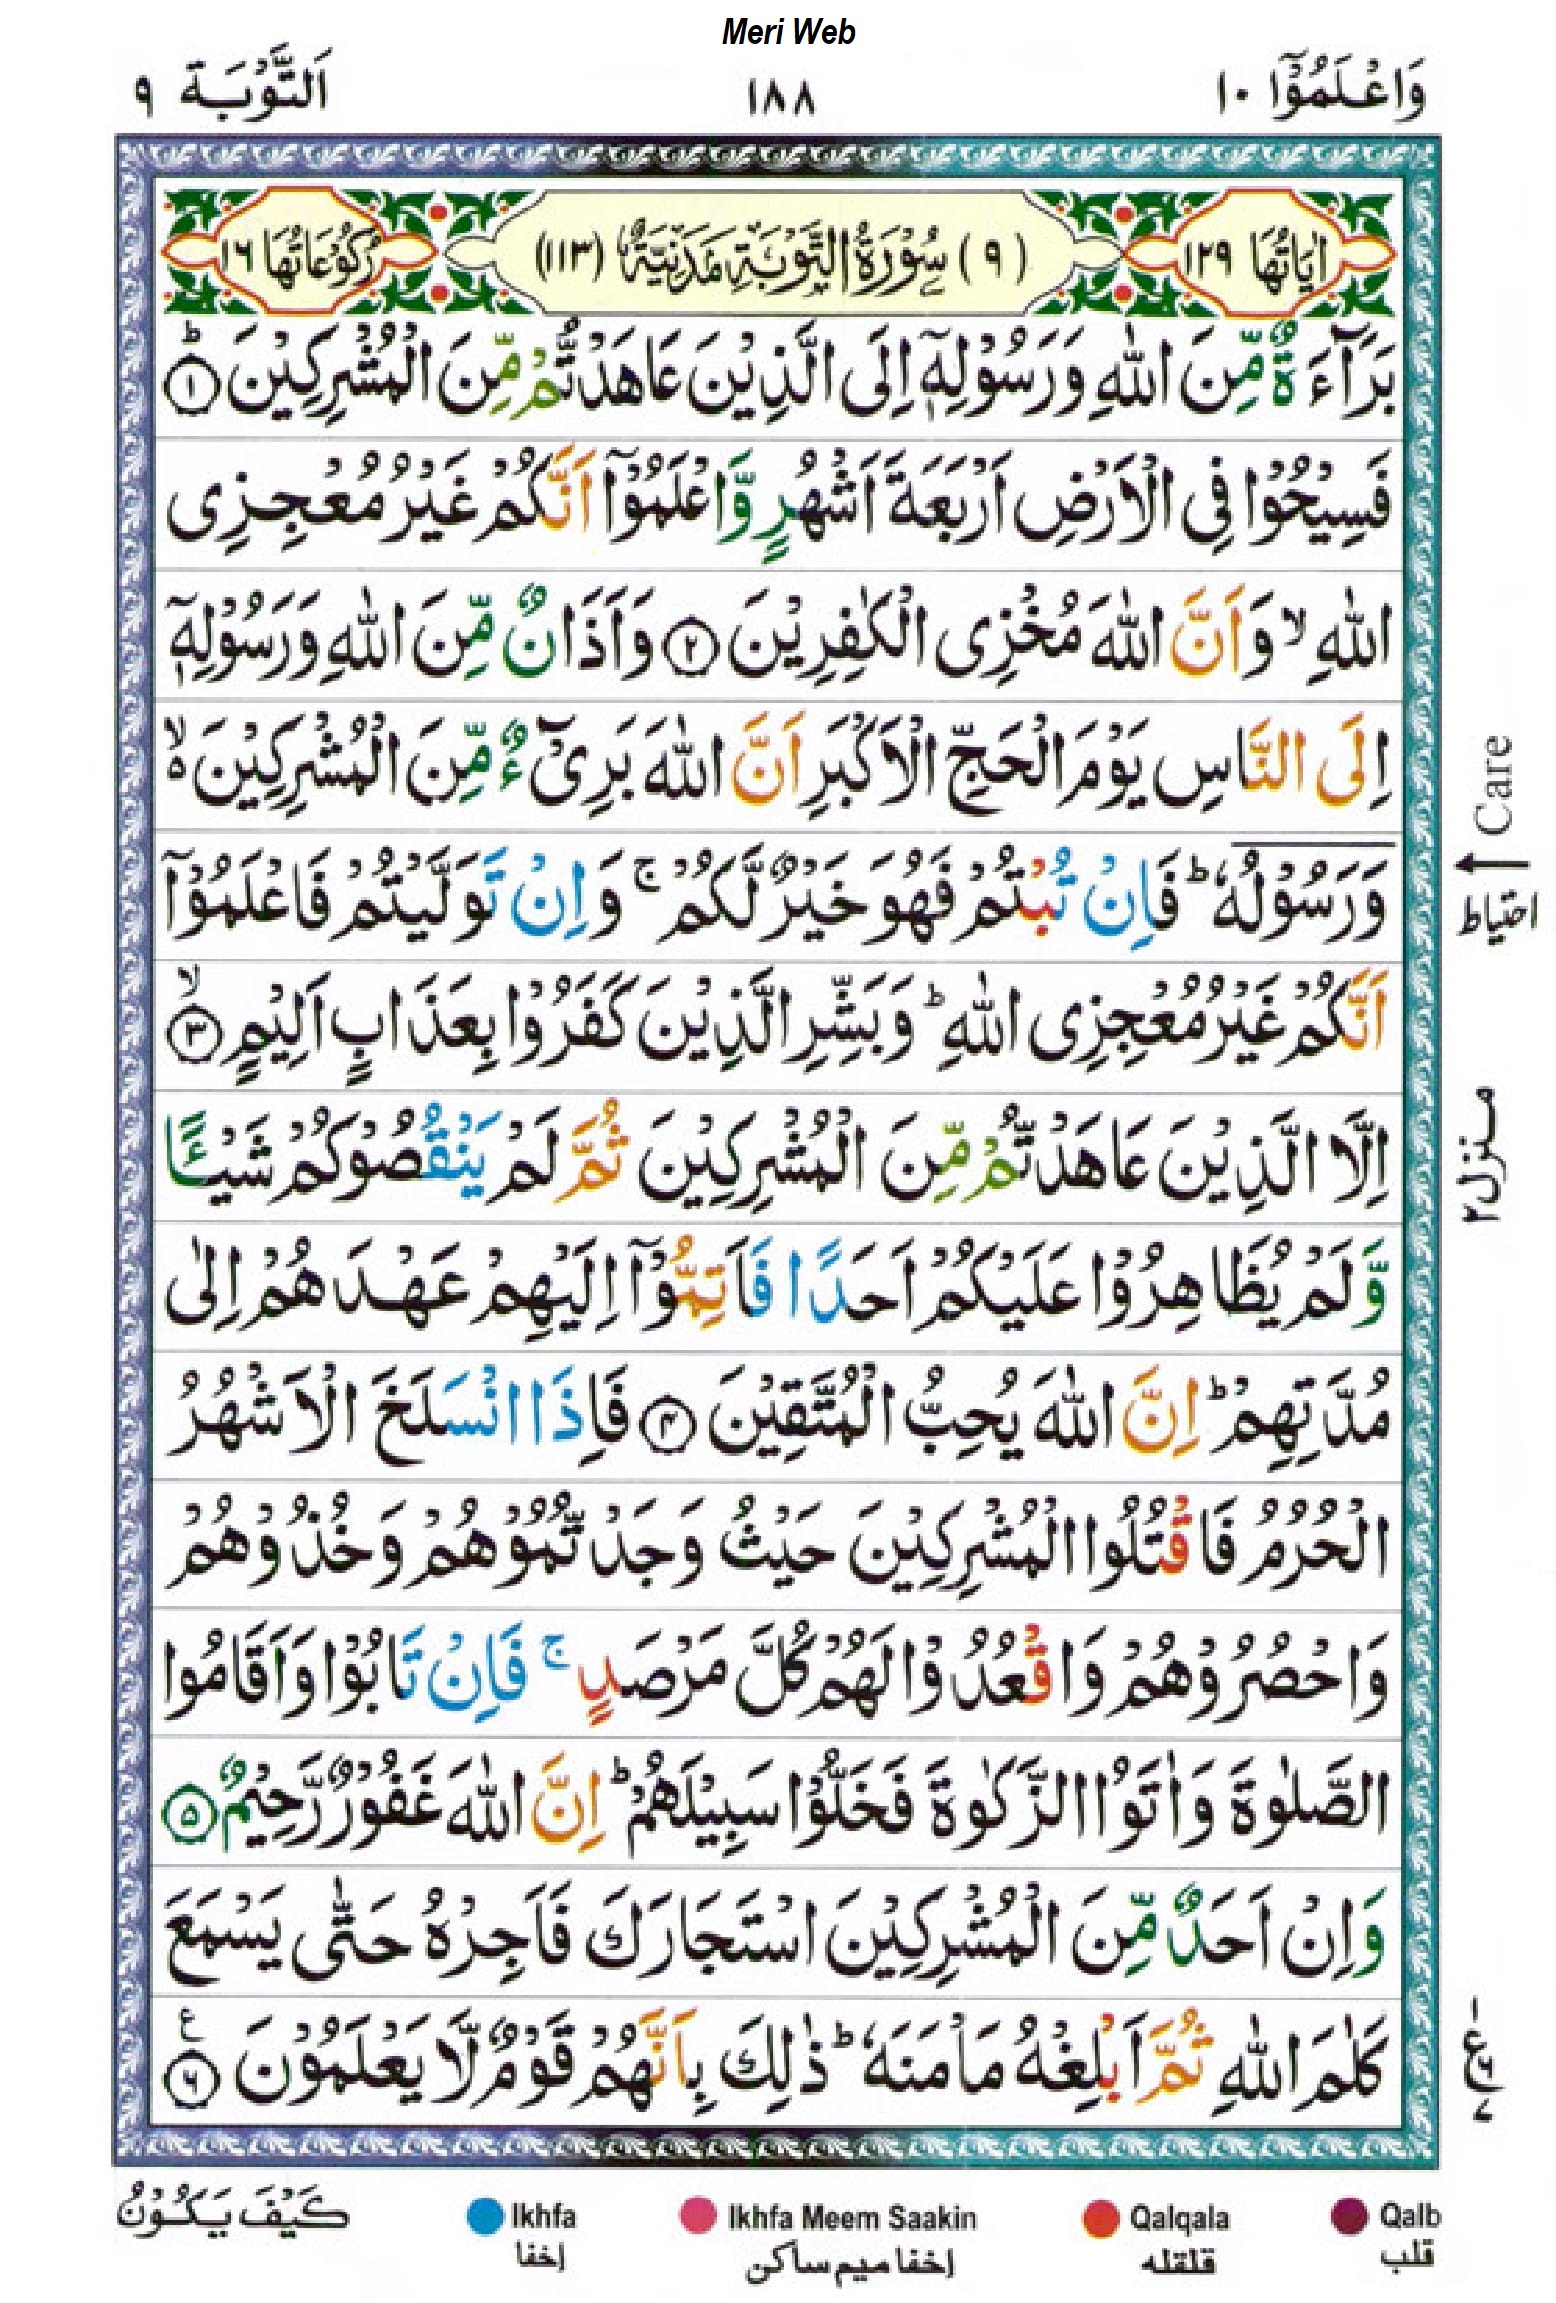 Meri Web
وَاعْلَمُوْٓا ١٠ ١٨٨ اَلتَّوْبَة ٩
اٰيَاتُهَا ١٢٩ (٩) سُوْرَةُ التَّوْبَةِ مَدَنِيَّةٌ (١١٣) رُكُوْعَاتُهَا ١٦
بَرَآءَةٌ مِّنَ اللّٰهِ وَرَسُوْلِهٖٓ اِلَى الَّذِيْنَ عَاهَدْتُّمْ مِّنَ الْمُشْرِكِيْنَ ؕ ﴿١﴾
فَسِيْحُوْا فِى الْاَرْضِ اَرْبَعَةَ اَشْهُرٍ وَّاعْلَمُوْٓا اَنَّكُمْ غَيْرُ مُعْجِزِى
اللّٰهِ ۙ وَاَنَّ اللّٰهَ مُخْزِى الْكٰفِرِيْنَ ﴿٢﴾ وَاَذَانٌ مِّنَ اللّٰهِ وَرَسُوْلِهٖٓ
اِلَى النَّاسِ يَوْمَ الْحَجِّ الْاَكْبَرِ اَنَّ اللّٰهَ بَرِىْٓءٌ مِّنَ الْمُشْرِكِيْنَ ۙ۬
وَرَسُوْلُهٗ ؕ فَاِنْ تُبْتُمْ فَهُوَ خَيْرٌ لَّكُمْ ۚ وَاِنْ تَوَلَّيْتُمْ فَاعْلَمُوْٓا
اَنَّكُمْ غَيْرُ مُعْجِزِى اللّٰهِ ؕ وَبَشِّرِ الَّذِيْنَ كَفَرُوْا بِعَذَابٍ اَلِيْمٍ ۙ ﴿٣﴾
اِلَّا الَّذِيْنَ عَاهَدْتُّمْ مِّنَ الْمُشْرِكِيْنَ ثُمَّ لَمْ يَنْقُصُوْكُمْ شَيْـًٔا
وَّلَمْ يُظَاهِرُوْا عَلَيْكُمْ اَحَدًا فَاَتِمُّوْٓا اِلَيْهِمْ عَهْدَهُمْ اِلٰى
مُدَّتِهِمْ ؕ اِنَّ اللّٰهَ يُحِبُّ الْمُتَّقِيْنَ ﴿٤﴾ فَاِذَا انْسَلَخَ الْاَشْهُرُ
الْحُرُمُ فَاقْتُلُوا الْمُشْرِكِيْنَ حَيْثُ وَجَدْتُّمُوْهُمْ وَخُذُوْهُمْ
وَاحْصُرُوْهُمْ وَاقْعُدُوْا لَهُمْ كُلَّ مَرْصَدٍ ۚ فَاِنْ تَابُوْا وَاَقَامُوا
الصَّلٰوةَ وَاٰتَوُا الزَّكٰوةَ فَخَلُّوْا سَبِيْلَهُمْ ؕ اِنَّ اللّٰهَ غَفُوْرٌ رَّحِيْمٌ ﴿٥﴾
وَاِنْ اَحَدٌ مِّنَ الْمُشْرِكِيْنَ اسْتَجَارَكَ فَاَجِرْهُ حَتّٰى يَسْمَعَ
كَلٰمَ اللّٰهِ ثُمَّ اَبْلِغْهُ مَاْمَنَهٗ ؕ ذٰلِكَ بِاَنَّهُمْ قَوْمٌ لَّا يَعْلَمُوْنَ ﴿٦﴾ ع
Care
احتیاط
منزل ٢
ع
كَيْفَ يَكُوْنُ
Ikhfa Ikhfa Meem Saakin Qalqala Qalb
إخفا إخفا ميم ساكن قلقله قلب